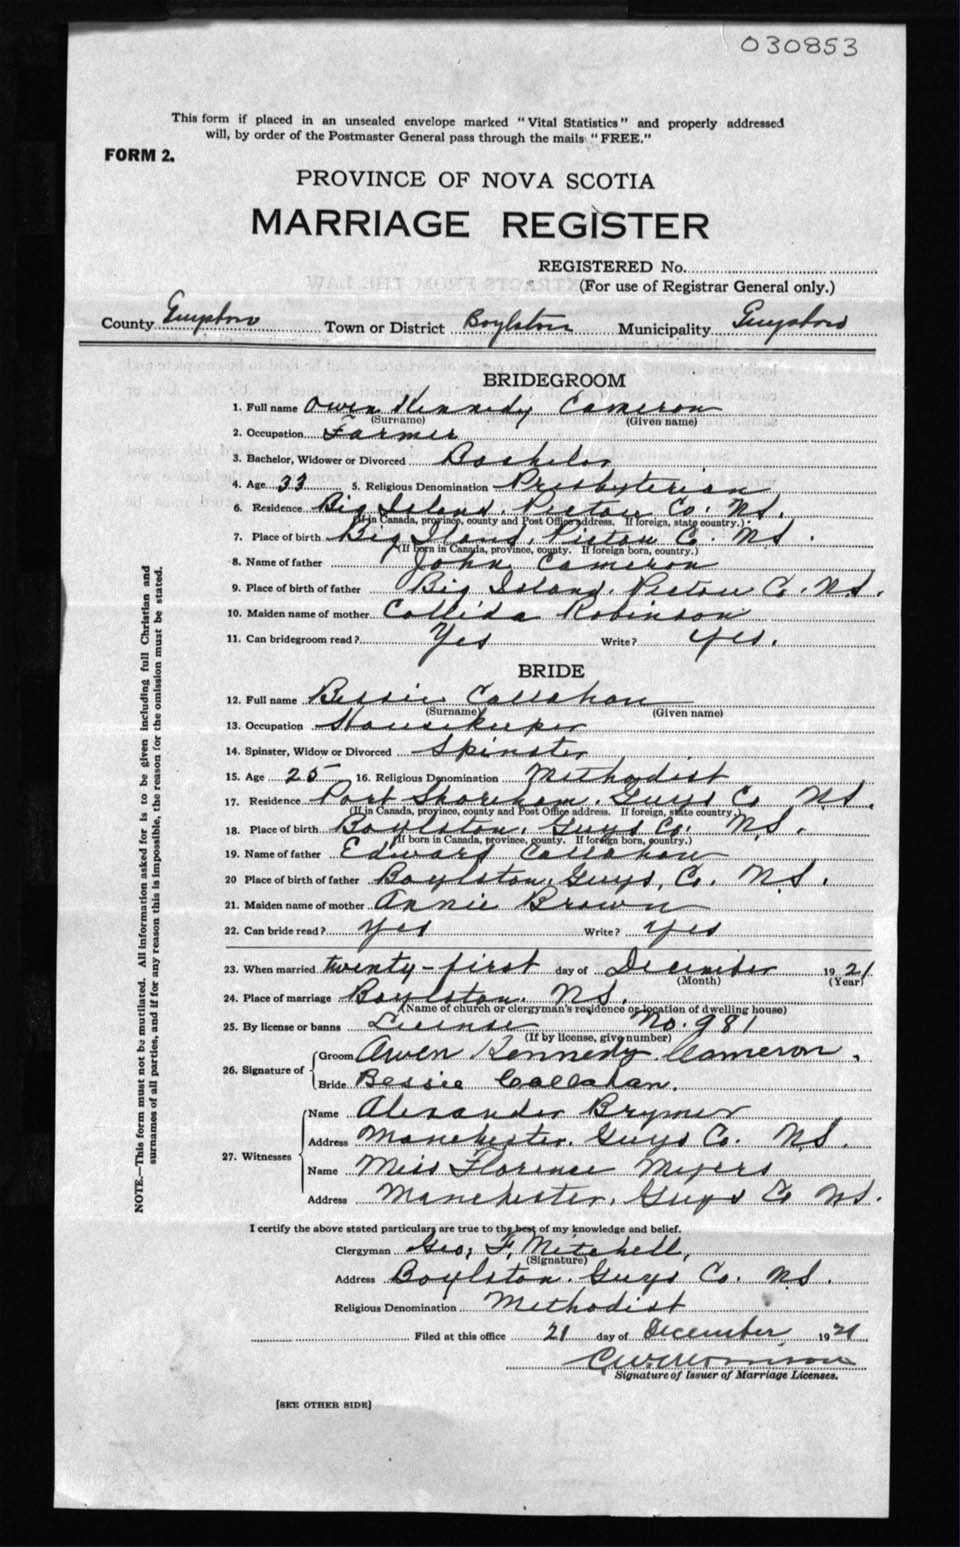 030853
This form if placed in an unsealed envelope marked "Vital Statistics" and properly addressed
will, by order of the Postmaster General pass through the mails "FREE."
FORM 2.
PROVINCE OF NOVA SCOTIA
MARRIAGE REGISTER
REGISTERED No.
(For use of Registrar General only.)
County Guysboro Town or District Boylston Municipality Guysboro
BRIDEGROOM
1. Full name Owen Kennedy Cameron
(Surname) (Given name)
2. Occupation Farmer
3. Bachelor, Widower or Divorced Bachelor
4. Age 33 5. Religious Denomination Presbyterian
6. Residence Big Island, Pictou Co. N.S.
(If in Canada, province, county and Post Office address. If foreign, state country.)
7. Place of birth Big Iland, Pictou C. N.S.
(If born in Canada, province, county. If foreign born, country.)
8. Name of father John Cameron
9. Place of birth of father Big Island, Pictou C. N.S.
10. Maiden name of mother Collida Robinson
11. Can bridegroom read? Yes Write? Yes.
BRIDE
12. Full name Bessie Callahan
(Surname) (Given name)
13. Occupation Housekeeper
14. Spinster, Widow or Divorced Spinster
15. Age 25 16. Religious Denomination Methodist
17. Residence Port Shoreham, Guys Co N.S.
(If in Canada, province, county and Post Office address. If foreign, state country.)
18. Place of birth Boylston, Guys Co. N.S.
(If born in Canada, province, county. If foreign born, country.)
19. Name of father Edward Callahan
20 Place of birth of father Boylston, Guys, Co. N.S.
21. Maiden name of mother Annie Brown
22. Can bride read? Yes Write? Yes
23. When married twenty-first day of December 1921
(Month) (Year)
24. Place of marriage Boylston. N.S.
(Name of church or clergyman's residence or location of dwelling house)
25. By license or banns License No. 981
(If by license, give number)
26. Signature of Groom Owen Kennedy Cameron.
Bride Bessie Callahan.
27. Witnesses Name Alexander Brymer
Address Manchester, Guys Co. N.S.
Name Miss Florence Myers
Address Manchester, Guys Co N.S.
I certify the above stated particulars are true to the best of my knowledge and belief.
Clergyman Geo. F. Mitchell,
(Signature)
Address Boylston. Guys Co. N.S.
Religious Denomination Methodist
Filed at this office 21 day of December 1921
C. W. Morrison
Signature of Issuer of Marriage Licenses.
[SEE OTHER SIDE]
NOTE.—This form must not be mutilated. All information asked for is to be given including full Christian and
surnames of all parties, and if for any reason this is impossible, the reason for the omission must be stated.